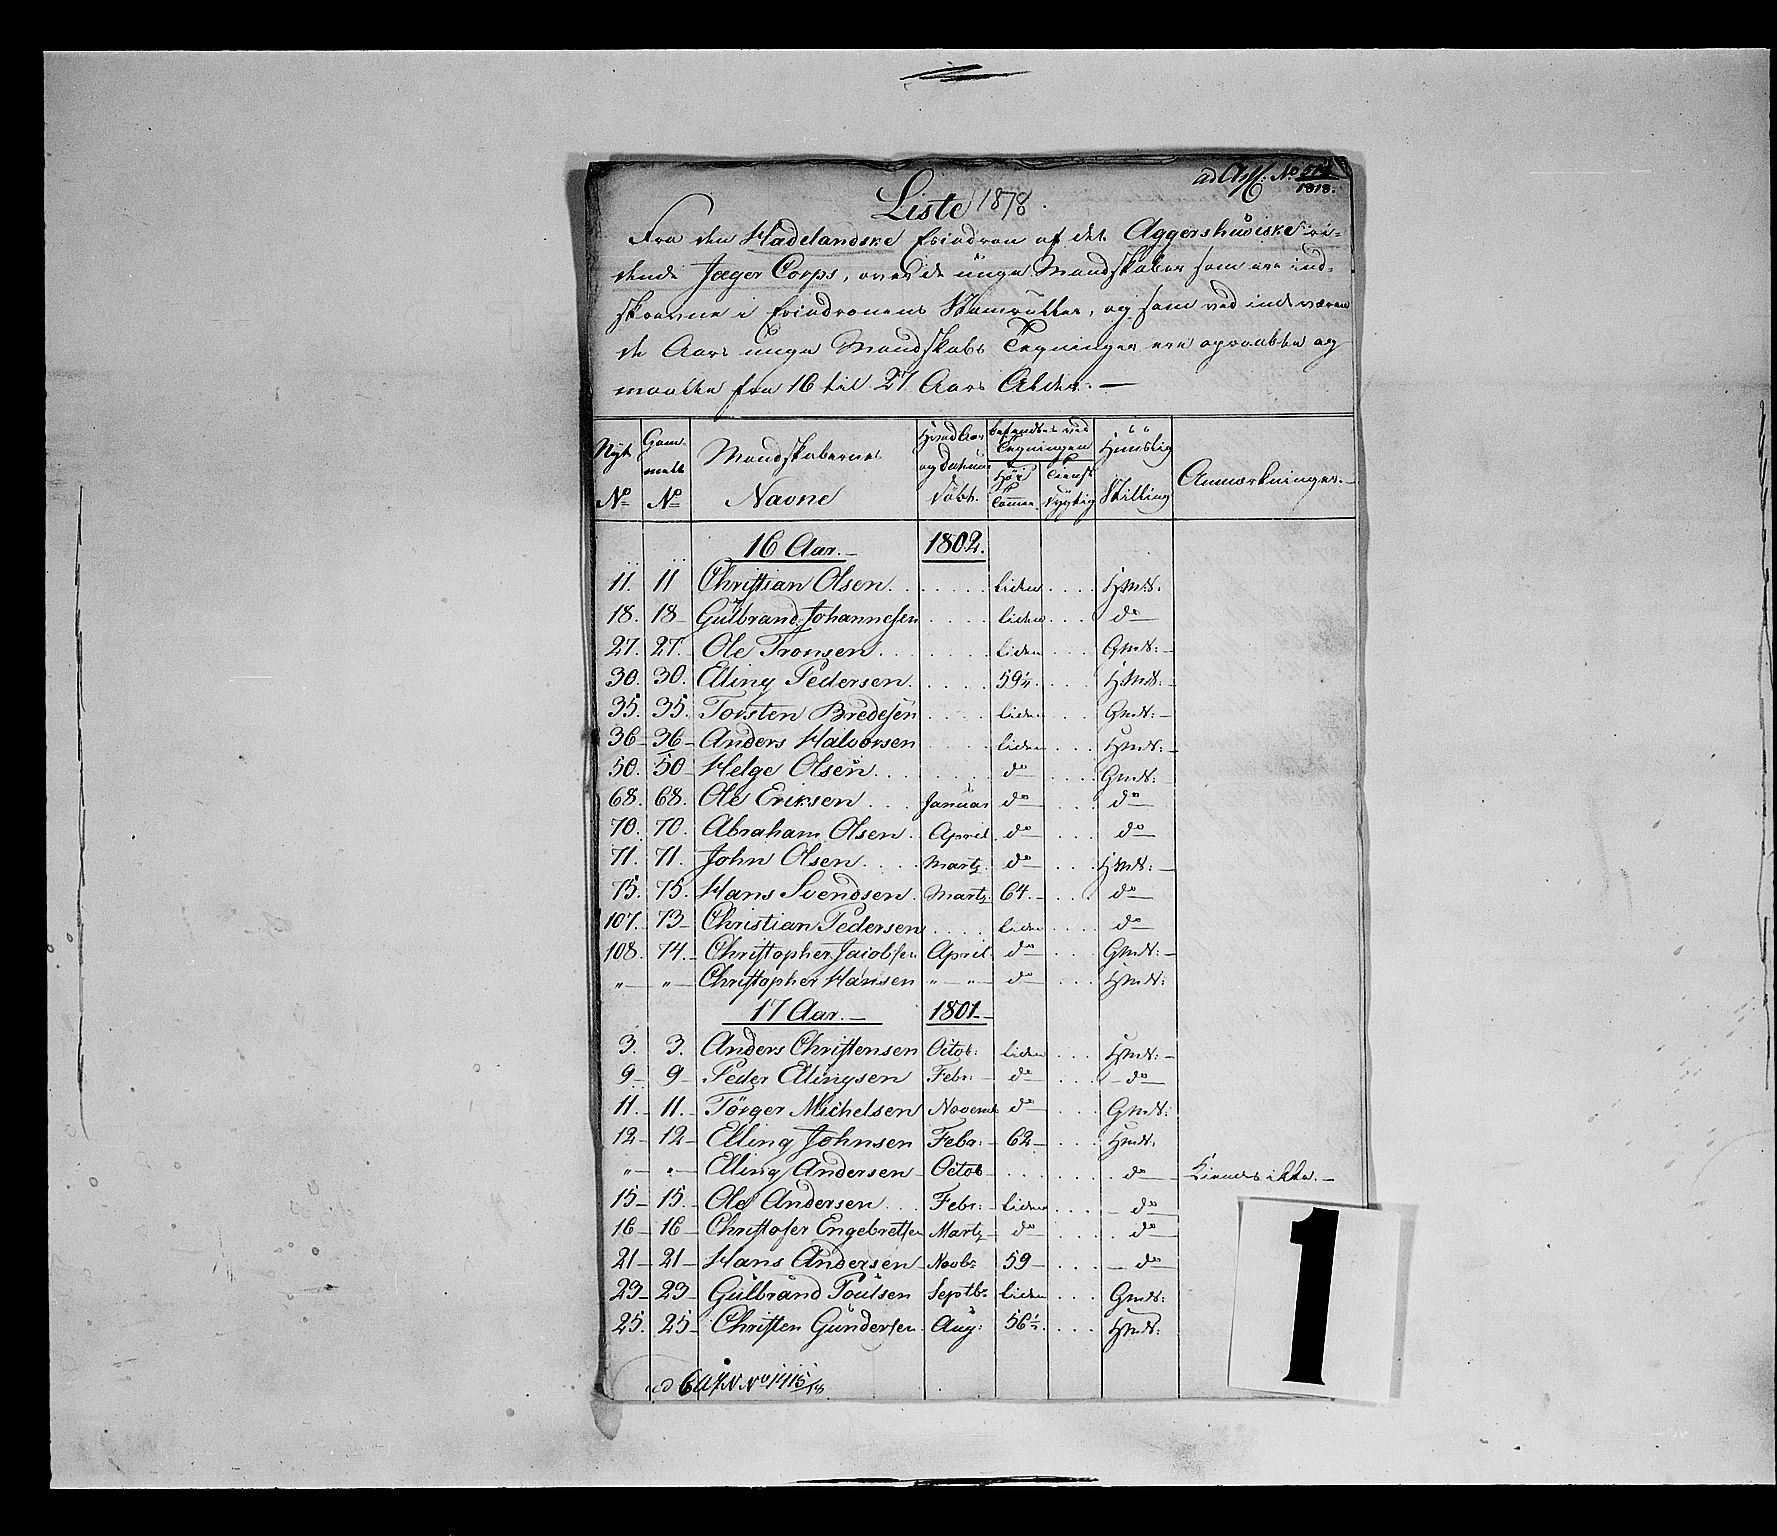 ad No 1818.
Liste 1818.
Fra den Hadelandske Esqvadron af det Aggershuusiske ri-
dende Jæger Corps, over de unge Mandskaber som ere ind-
skrevne i Esqvadronens Stamruller, og som ved indeværen
de Aars unge Mandskabs Tegninger ere opraabte og
maalte fra 16 til 21 Aars Alder. —
Nyt No | Gam- melt No | Mandskabernes Navne | Hvad Aar og Datum döbt. | befandtes ved Tegningen | Höi Tommer | Tienst dygtig | Huuslig Stilling | Anmærkninger. -
16 Aar. — 1802.
11. 11 Christian Olsen . . . liden . . . Hmd:
18. 18 - Gulbrand Johannesen . . . liden . . . do
27. 27. Ole Tronsen . . . liden . . . Gmd: -
30. 30. Elling Pedersen . . . 59¼ . . . Hmd: -
35. 35. Torsten Bredesen . . . liden . . . Gmd: -
36 - 36 - Anders Halvorsen . . . liden . . . Hmd: -
50. 50 - Helge Olsen . . . do . . . Gmd:
68. 68. Ole Eriksen . . . Januar do . . . do
70. 70. Abraham Olsen . April. do . . . do
71. 71. John Olsen . . . Martz. do . . . Hmd: -
75. 75. Hans Svendsen . Martz. 64. - . . . do
107. 73 - Christian Pedersen . . . liden . . . do
108. 74. - Christopher Jacobsen April. do . . . Gmd: -
" - " - Christopher Hansen " - " - do . . . Hmd:
17 Aar. — 1801 -
3. 3. Anders Christensen Octob: liden . . . Hmd: -
9 - 9 - Peder Ellingsen Febr: - do . . . - do
11. - 11. - Törger Michelsen Novemb do . . . Gmd:
12 - 12 - Elling Johnsen Febr: - 62 - . . . Hmd.
" - " - Elling Andersen - Octob - . . . do - Kiendes ikke. -
15 - 15. Ole Andersen . . . Febr: - liden . . . - do
16 - 16 - Christofer Engebretsen Martz - do . . . do
21 - 21 - Hans Andersen - Novbr 59 - . . . - do
23 - 23 - Gulbrand Poulsen Septbr. liden . . . Gmd:
25. 25 - Christen Gundersen Aug: 56½ . . . Hmd:
No 1415/18
1